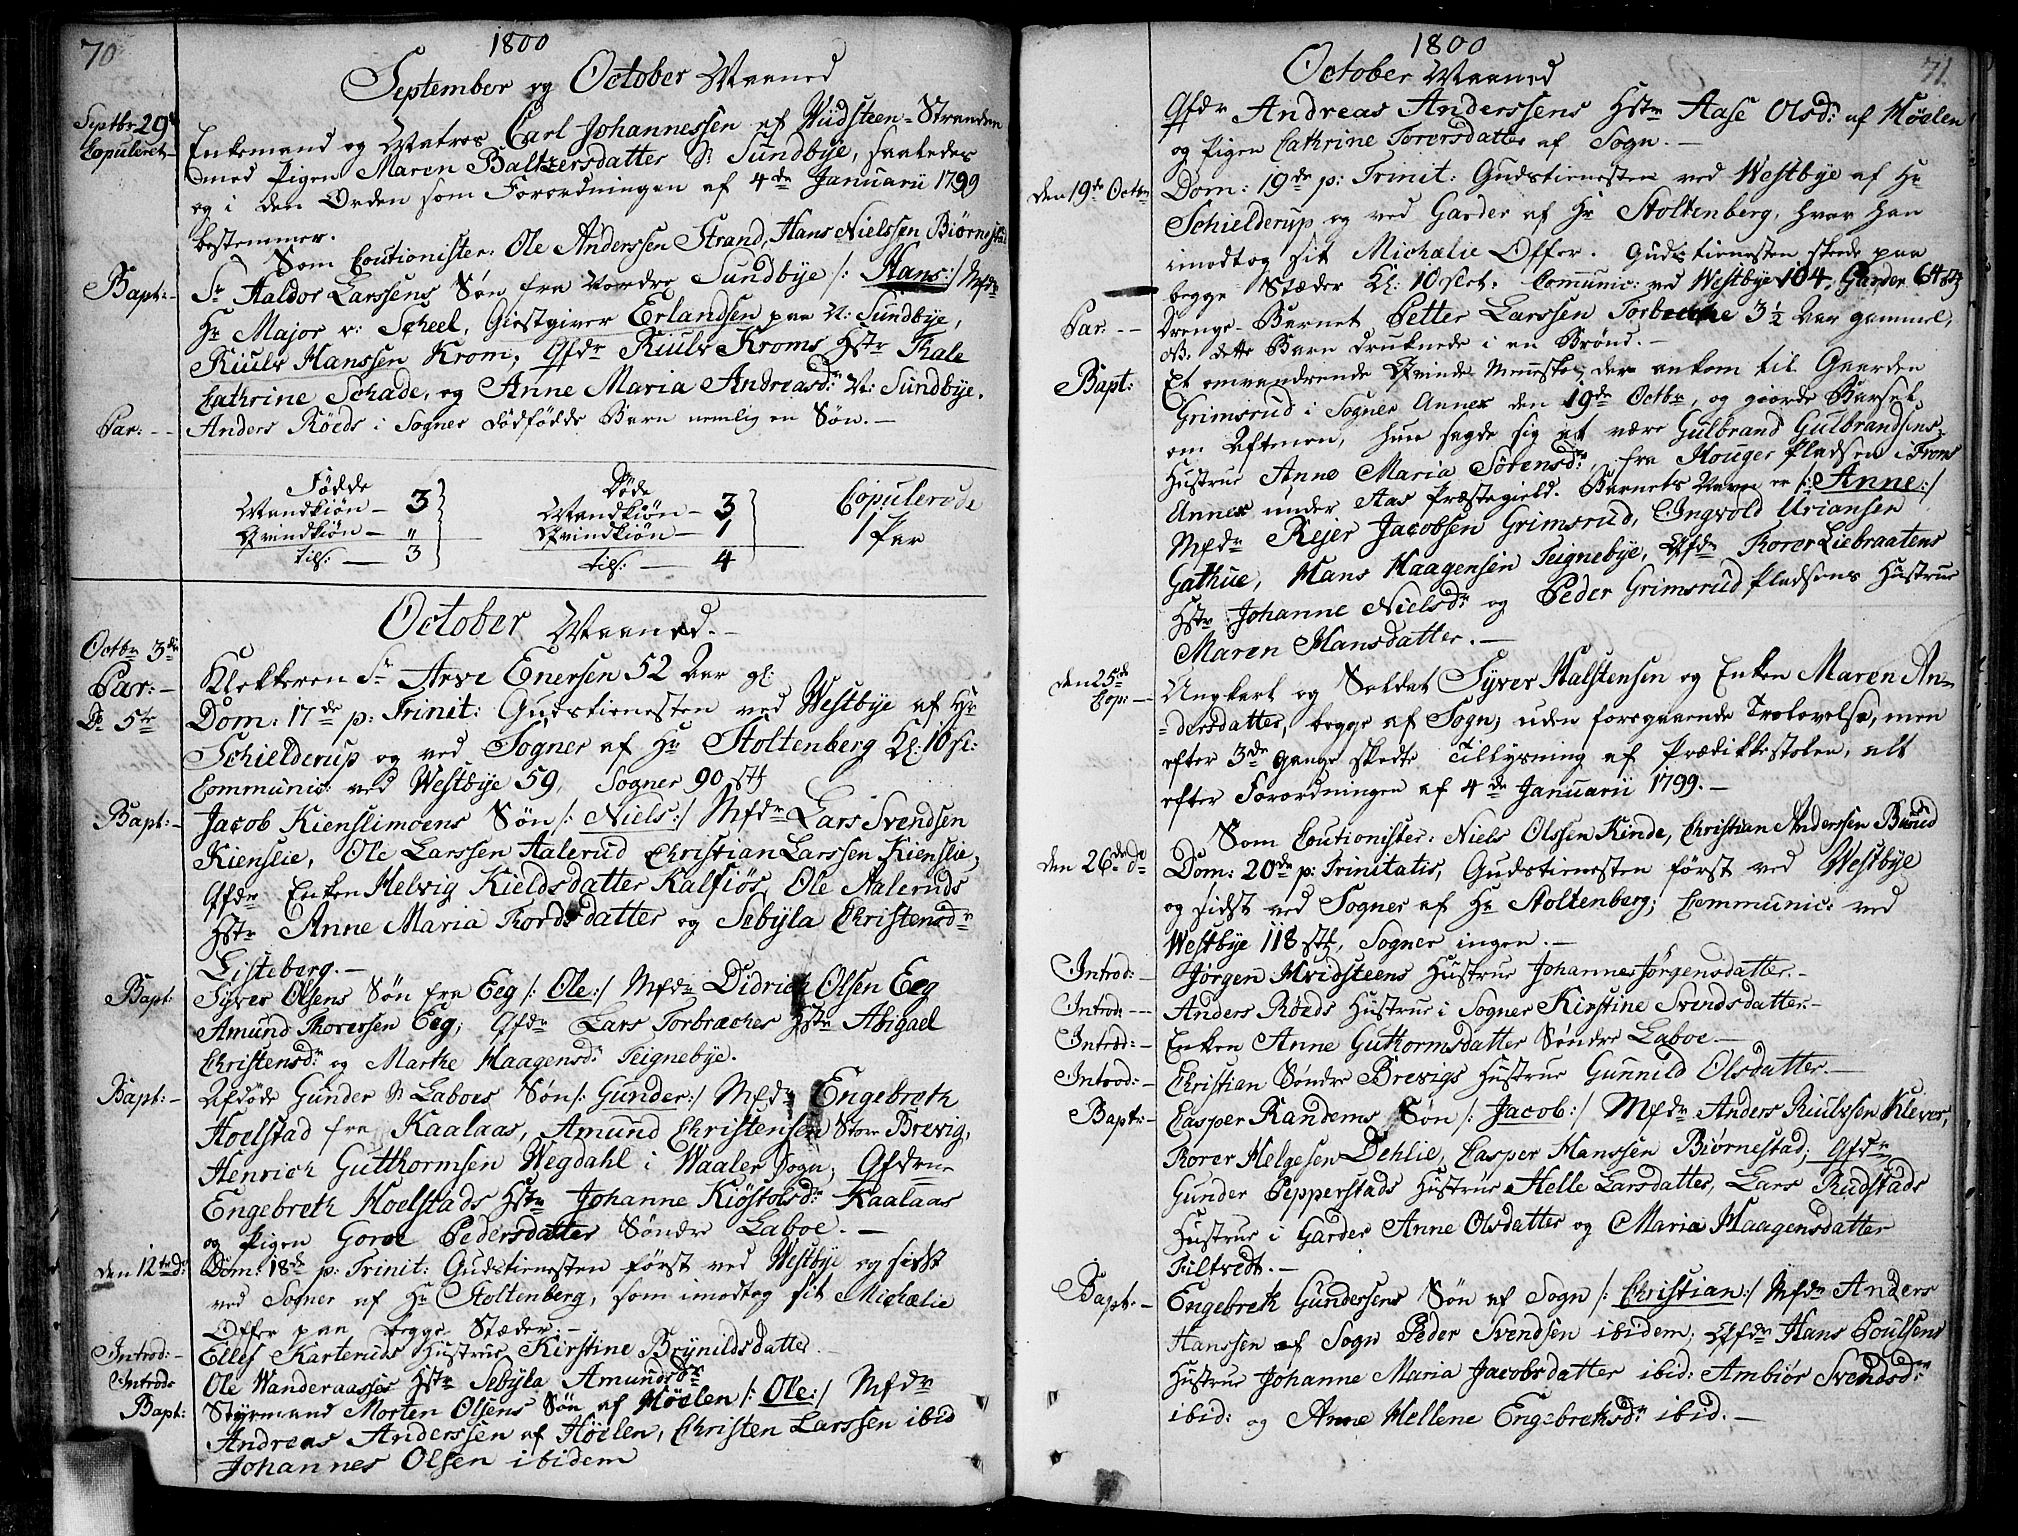 70
1800
September og October Maaned
Septbr 29de Enkemand og Matros Carl Johannessen af Vudsteen-Stranden
Copuleret- med Pigen Maren Baltzersdatter N: Sundbye, saaledes
og i den Orden som Forordningen af 4de Januarii 1799
bestemmer.
Som Coutionister: Ole Anderssen Strand, Hans Nielssen Biørnestad
Bapt:- Sr Haldor Larssens Søn fra Nordre Sundbye /: Hans:/ Mfdr
Hr Major v: Scheel, Giestgiver Erlandsen paa N: Sundbye,
Riulv Hanssen Krom, Qfdr Riulv Kroms Hstr Kale
Cathrine Schade, og Anne Maria Andreasdr N: Sundbye.
Par: -- Anders Röeds i Sogner dødfødde Barn nemlig en Søn.-
Fødde Døde Copulerede
Mandkiøn - 3 Mandkiøn - 3 1 Par
Qvindkiøn - " Qvindkiøn - 1
tils: - 3 tils: - 4
October Maaned.-
Octbr 3de
Par:- Klokkeren Sr Arve Enersen 52 Aar gl:
Do 5te Dom: 17de p: Trinit: Gudstienesten ved Westbye af Hr
Schielderup og ved Sogner af Hr Stoltenberg Kl: 10 sl:
Communic: ved Westbye 59, Sogner 90 stk
Bapt:- Jacob Kienslimoens Søn /: Niels:/ Mfdr Lars Svendsen
Kienslie, Ole Larssen Aalerud Christian Larssen Kienslie,
Qfdr Enken Helvig Kieldsdatter Kalfiøs, Ole Aaleruds
Hstr Anne Maria Thordsdatter og Sebyla Christensdr
Listeberg.-
Bapt: Syver Olsens Søn fra Eeg /: Ole:/ Mfdr Didrich Olsen Eeg
Amund Thorersen Eeg, Qfdr Lars Torbraches Hstr Abigael
Christensdr og Marthe Haagensdr Teignebye.
Bapt:- Afdøde Gunder N Laboes Søn /: Gunder:/ Mfdr Engebreth
Hoelstad fra Kaalaas, Amund Christensen Store Brevig,
Henrich Gutthormsen Wegdahl i Waaler Sogn, Qfdrne
Engebreth Hoelstads Hstr Johanne Kiöstolsdr Kaalaas
og Pigen Goroe Pedersdatter Søndre Laboe.-
den 12te do: Dom: 18de p: Trinit: Gudstienesten først ved Westbye og sidst
ved Sogner af Hr Stoltenberg, som imodtog sit Michælie
Offer paa begge Stæder.-
Introd:- Ellef Karteruds Hustrue Kirstine Brynildsdatter.-
Introd: Ole Wanderaasses Hstr Sebyla Amundsdr
Bapt: Styrmand Morten Olsens Søn af Höelen /: Ole:/ Mfdr
Andreas Anderssen af Höelen, Christen Larssen ibid
Johannes Olsen ibidem
1800
71.
October Maaned
Qfdr Andreas Anderssens Hstr Aase Olsdr af Höelen
og Pigen Cathrine Torersdatter af Sogn.-
den 19de Octbr Dom: 19de p: Trinit: Gudstienesten ved Westbye af Hr
Schielderup og ved Garder af Hr Stoltenberg, hvor han
imodtog sit Michælie Offer. Gudstienesten skede paa
begge Stæder Kl: 10 slet. Communic: ved Westbye 104, Garder 64 stk
Par: -- Drenge-Barnet Petter Larssen Torbeche 3 1/2 Aar gammel,
NB: dette Barn druknede i en Brønd.-
Bapt: Et omvandrende Qvinde Menneske, der ankom til Gaarden
Grimsrud i Sogner Annex den 19de Octbr, og giorde Barsel,
om Aftenen, hun sagde sig at være Gulbrand Gulbrandsens
Hustrue Anne Maria Sörensdr, fra Houger Pladsen i Frons
Annex under Aas Præstegield. Barnets Navn er /: Anne:/
Mfdr Rejer Jacobsen Grimsrud, Engvold Urianssen
Gathue, Hans Haagensen Teignebye, Qfdr Thorer Liebraatens
Hstr Johanne Nielsdr og Peder Grimsrud Pladsens Hustrue
Maren Hansdatter.-
den 25de
Cop: - Ungkarl og Soldat Syver Halstensen og Enken Maren An-
-dersdatter, begge af Sogn, uden foregaaende Trolovelse, men
efter 3de gange skedte Tillysning af Prædikkestolen, alt
efter Forordningen af 4de Januarii 1799.-
Som Coutionister: Niels Olssen Kinde, Christian Anderssen Burud
den 26de do Dom: 20de p: Trinitatis, Gudstienesten først ved Westbye
og sidst ved Sogner af Hr Stoltenberg, Communic: ved
Westbye 118 stk, Sogner ingen.-
Introd:- Jørgen Hvidsteens Hustrue Johanne Jørgensdatter.-
Introd:-- Anders Röeds Hustrue i Sogner Kirstine Svendsdatter.-
Introd:- Enken Anne Guthormsdatter Søndre Laboe.-
Introd:- Christian Søndre Brevigs Hustrue Gunnild Olsdatter.-
Bapt:- Casper Randems Søn /: Jacob:/ Mfdr Anders Riulvsen Klever,
Thorer Helgesen Dehlie, Casper Hanssen Biørnestad, Qfdr
Gunder Pepperstads Hustrue Helle Larsdatter, Lars Rudstads
Hustrue i Garder Anne Olsdatter og Maria Haagensdatter
Filtvedt.-
Bapt:- Engebreth Gunderssens Søn af Sogn /: Christian:/ Mfdr Anders
Hanssen af Sogn Peder Svendsen ibidem, Qfdr Hans Poulsens
Hustrue Johanne Maria Jacobsdatter ibid: Ambiör Svendsdr
ibid: og Anne Hellene Engebrethsdr ibid.-